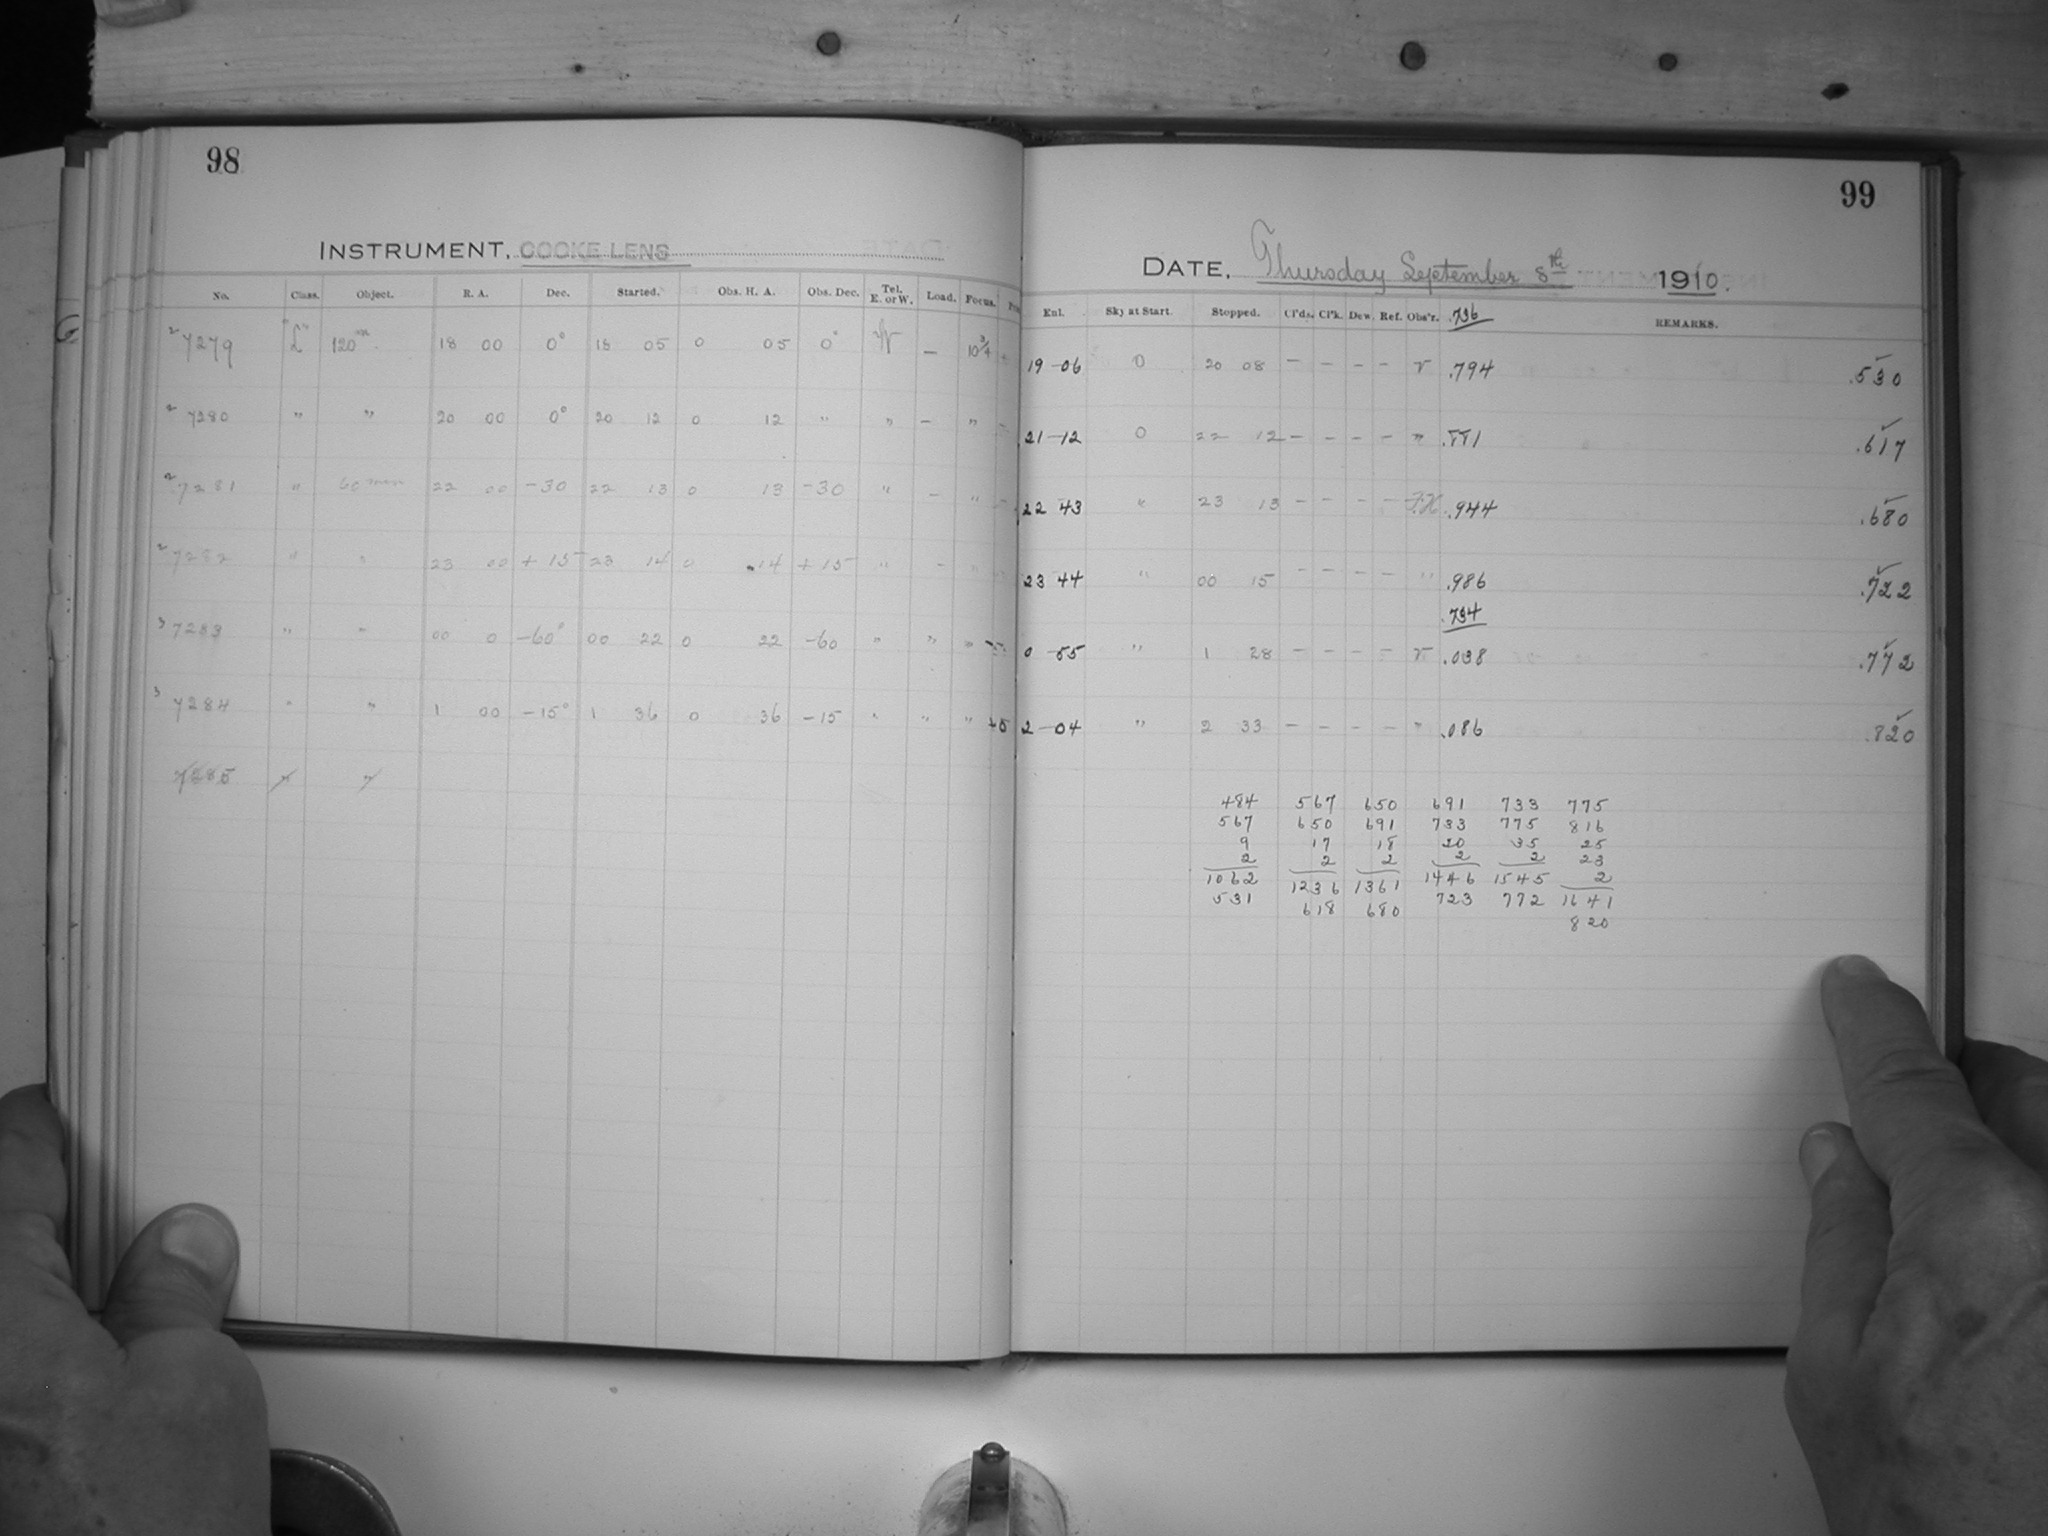 98
INSTRUMENT, COOKE LENS
No. Class. Object. R. A. Dec. Started. Obs. H. A. Obs. Dec. Tel. E. or W. Load. Focus.
2 7279 "L" 120 m 18 00 0° 18 05 0 05 0° W — 10 3/4
2 7280 " " 20 00 0° 20 12 0 12 " " — "
2 7281 " 60 min 22 00 -30 22 13 0 13 -30 " — "
2 7282 " " 23 00 + 15 23 14 0 14 + 15 " — "
3 7283 " " 00 0 -60° 00 22 0 22 -60 " " "
3 7284 " " 1 00 -15° 1 36 0 36 -15 " " " +5
7285 " "
99
DATE, Thursday September 8th 1910.
Enl. Sky at Start. Stopped. Cl'ds. Cl'k. Dew. Ref. Obs'r. .736 REMARKS.
19 -06 0 20 08 — — — — .794 .530
21 -12 0 22 12 — — — — " .617
22 43 " 23 13 — — — — .944 .680
23 44 " 00 15 — — — — " .986 .722
.734
0 -55 " 1 28 — — — — .038 .772
2 -04 " 2 33 — — — — " .086 .820
484 567 650 691 733 775
567 650 691 733 775 816
9 17 18 20 35 25
2 2 2 2 2 23
1062 1236 1361 1446 1545 2
531 618 680 723 772 1641
820